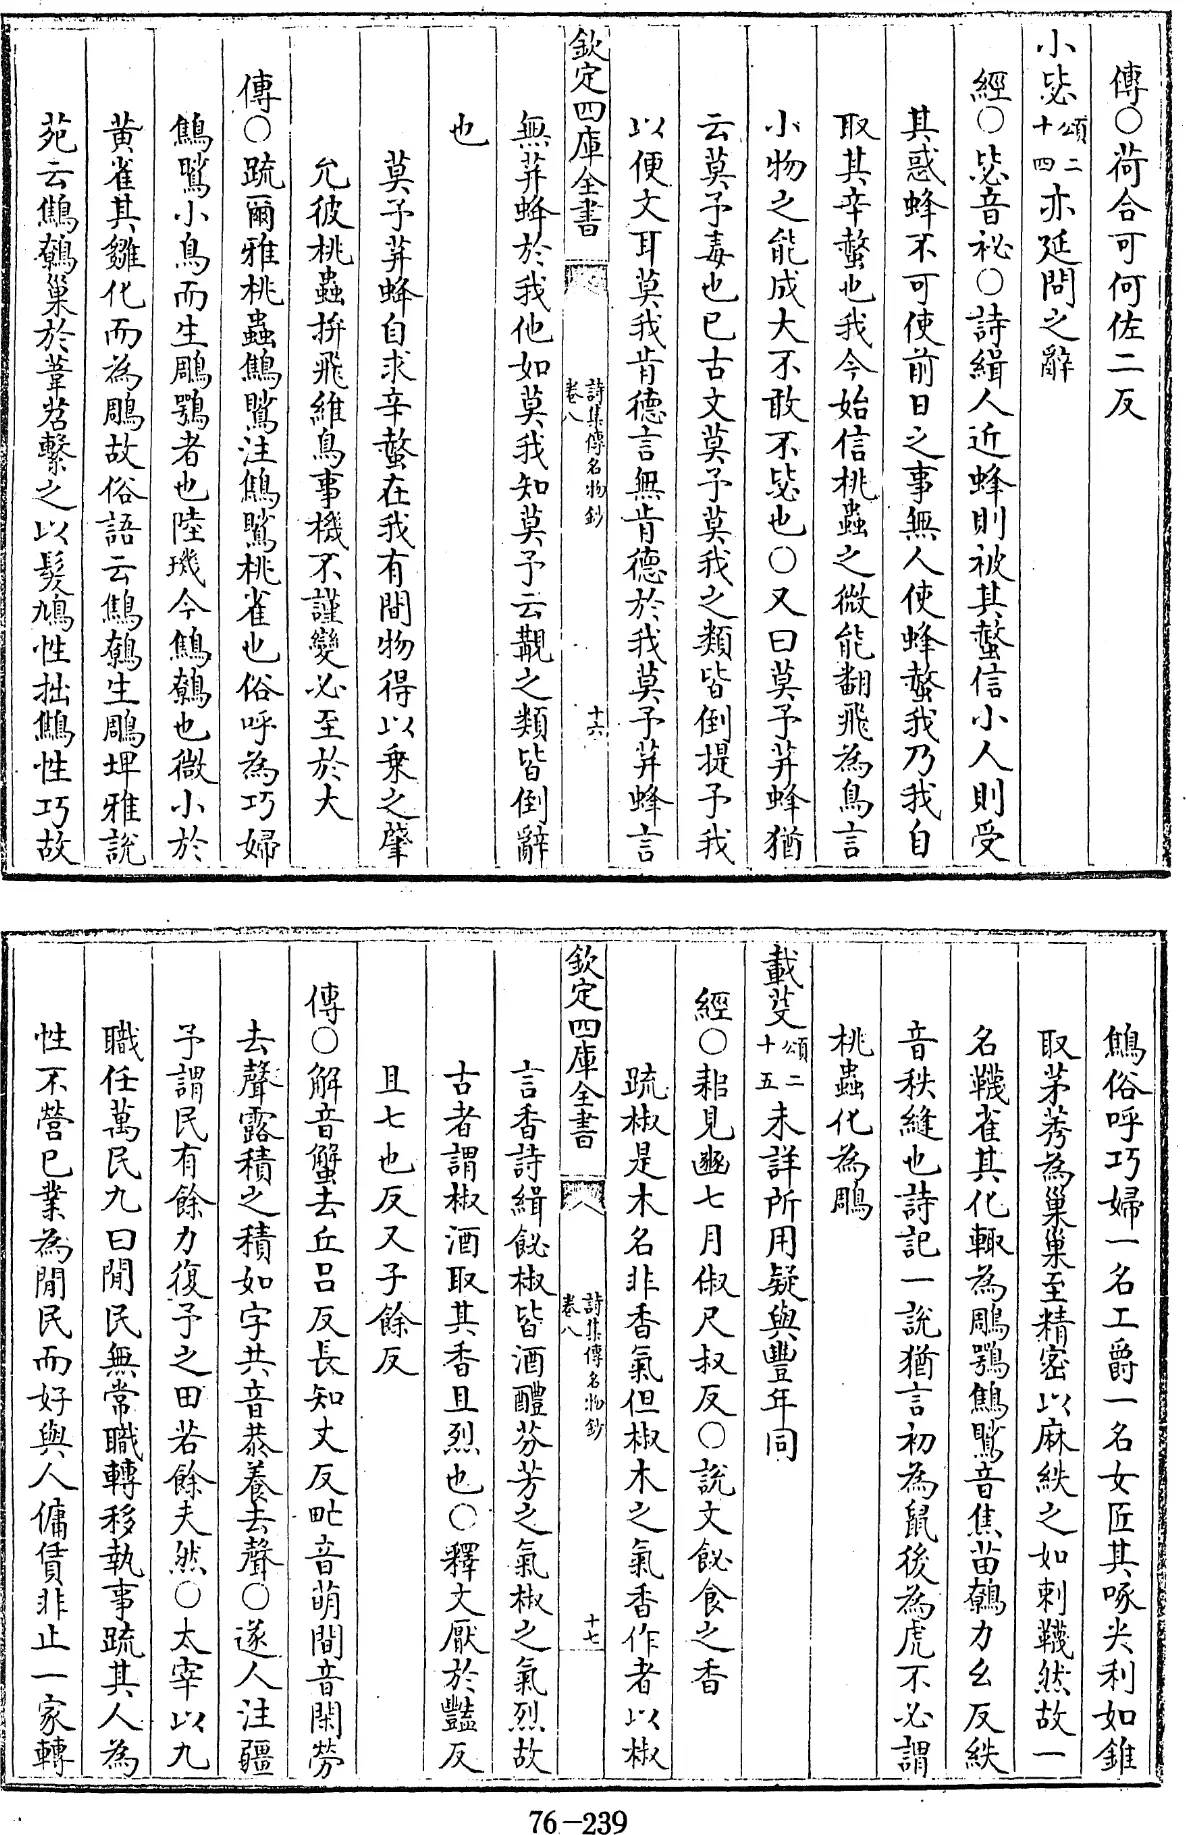 傳○荷合可何佐二反
小毖頌二十四亦延問之辭
經○毖音祕○詩緝人近蜂則被其螫信小人則受
其惑蜂不可使前日之事無人使蜂螫我乃我自
取其辛螫也我今始信桃蟲之微能翻飛為鳥言
小物之能成大不敢不毖也○又曰莫予荓蜂猶
云莫予毒也已古文莫予莫我之類皆倒提予我
以便文耳莫我肯德言無肯德於我莫予荓蜂言
欽定四庫全書 詩集傳名物鈔 卷八 十六
無荓蜂於我他如莫我知莫予云覯之類皆倒辭
也
莫予荓蜂自求辛螫在我有間物得以乗之肇
允彼桃蟲拚飛維鳥事機不謹變必至於大
傳○疏爾雅桃蟲鷦鴱注鷦鴱桃雀也俗呼為巧婦
鷦鴱小鳥而生鵰鶚者也陸璣今鷦鷯也微小於
黃雀其雛化而為鵰故俗語云鷦鷯生鵰埤雅說
苑云鷦鷯巢於葦苕繫之以髮鳩性拙鷦性巧故
鷦俗呼巧婦一名工爵一名女匠其啄尖利如錐
取茅莠為巢巢至精密以麻紩之如刺韈然故一
名韈雀其化輒為鵰鶚鷦鴱音焦苗鷯力幺反紩
音秩縫也詩記一說猶言初為鼠後為虎不必謂
桃蟲化為鵰
載芟頌二十五未詳所用疑與豐年同
經○耜見豳七月俶尺叔反○說文飶食之香
疏椒是木名非香氣但椒木之氣香作者以椒
欽定四庫全書 詩集傳名物鈔 卷八 十七
言香詩緝飶椒皆酒醴芬芳之氣椒之氣烈故
古者謂椒酒取其香且烈也○釋文厭於豔反
且七也反又子餘反
傳○解音蟹去丘呂反長知丈反甿音萌間音閑勞
去聲露積之積如字共音恭養去聲○遂人注疆
予謂民有餘力復予之田若餘夫然○太宰以九
職任萬民九曰閒民無常職轉移執事疏其人為
性不營已業為閒民而好與人傭賃非止一家轉
76-239